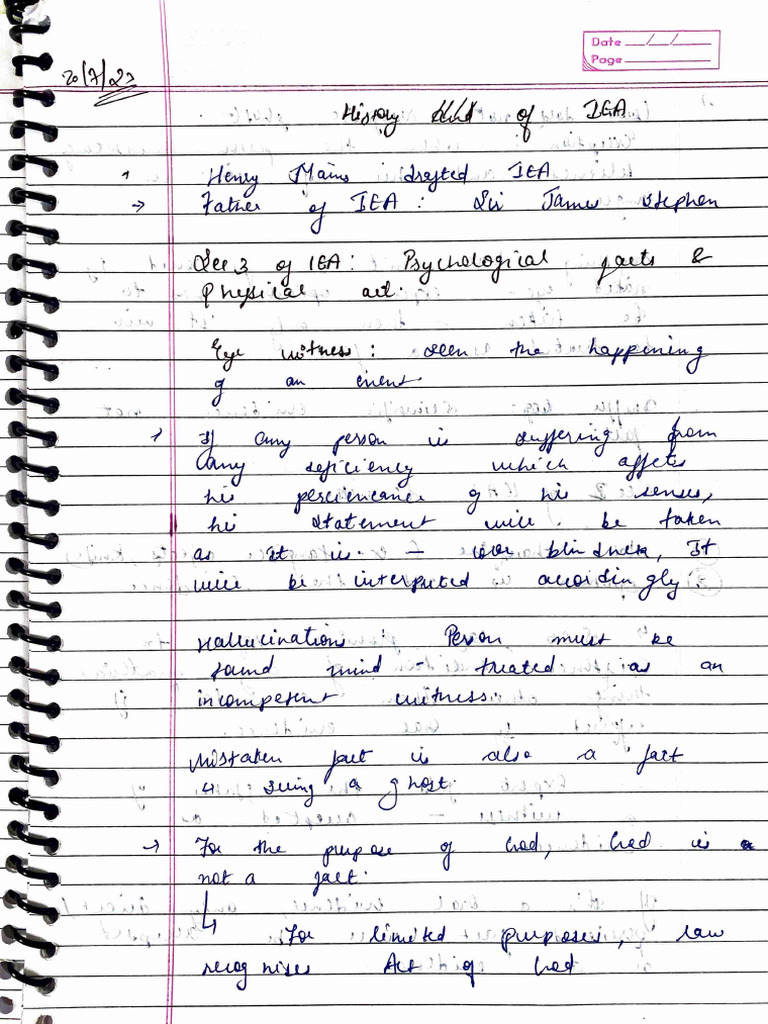 Date __/__/__
Page
20/7/23
History of IEA
Henry Maine drafted IEA
→ Father of IEA : Sir James Stephen
Sec 3 of IEA : Psychological facts &
Physical act.
Eye witness : seen the happening
of an event.
If any person is suffering from
any deficiency which affects
his of his senses,
his statement will be taken
as it is - blindness, It
will be interpreted accordingly.
Hallucination : Person must be
sound mind - treated as an
incompetent witness.
Mistaken fact is also a fact
↳ seeing a ghost.
→ For the purpose of God, God is
not a fact.
↳ For limited purposes, law
recognises Act of God